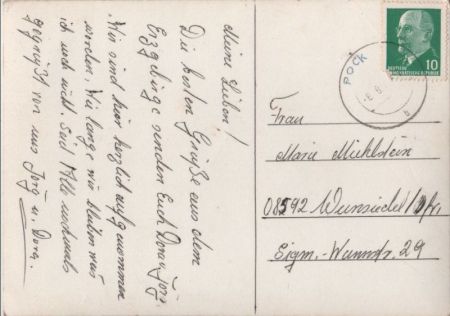 Meine Lieben!
Die besten Grüße aus dem
Erzgebirge senden Euch Dora u. Jörg.
Wir sind hier herzlich aufgenommen
worden. Wie lange wir bleiben weis
ich noch nicht. Seid Alle nochmals
gegrüßt von uns Jörg u. Dora.
DEUTSCHE
DEMOKRATISCHE REPUBLIK
10
POCK
Frau
Marie Mühlstein
08592 Wunsiedel/Ofr.
Sigm.-Wannstr. 29